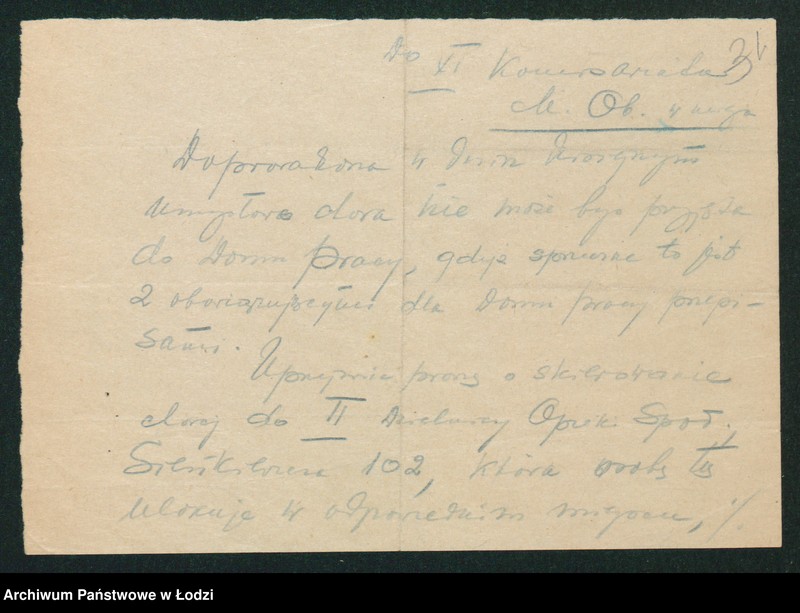 Do
XI Komisariatu
M. Ob. w
Doprowadzona w dniu
umysłowo chora nie może być przyjęta
do Domu pracy, gdyż sprzeczne to jest
z obowiązującymi dla Domu pracy przepi-
sami.
Uprzejmie proszę o skierowanie
chorej do II Dzielnicy Opiek. Społ.,
102, która osobę tę
ulokuje w odpowiednim miejscu, ./.
Archiwum Państwowe w Łodzi